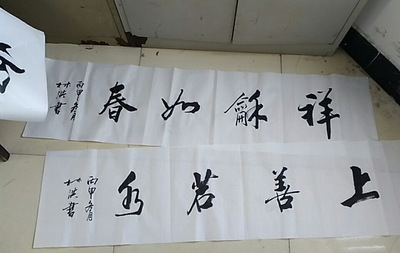 祥龢如春
丙申冬月
林洪書
上善若水
丙申冬月
林洪書